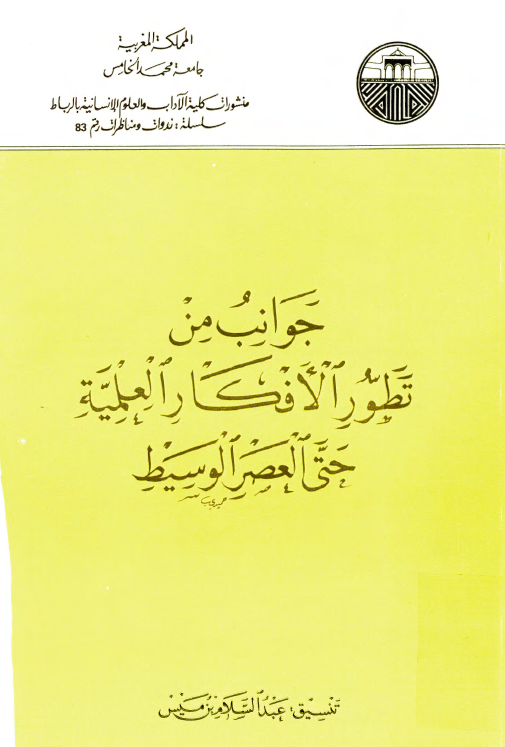 المملكة المغربية
جامعة محمد الخامس
منشورات كلية الآداب والعلوم الإنسانية بالرباط
سلسلة : ندوات ومناظرات رقم 83
جَوَانِبُ مِنْ
تَطَوُّرِ ٱلْأَفْكَارِ ٱلْعِلْمِيَّةِ
حَتَّى ٱلْعَصْرِ ٱلْوَسِيْطِ
تَنْسِيق: عَبْدُ السَّلَام بْن مَيْس